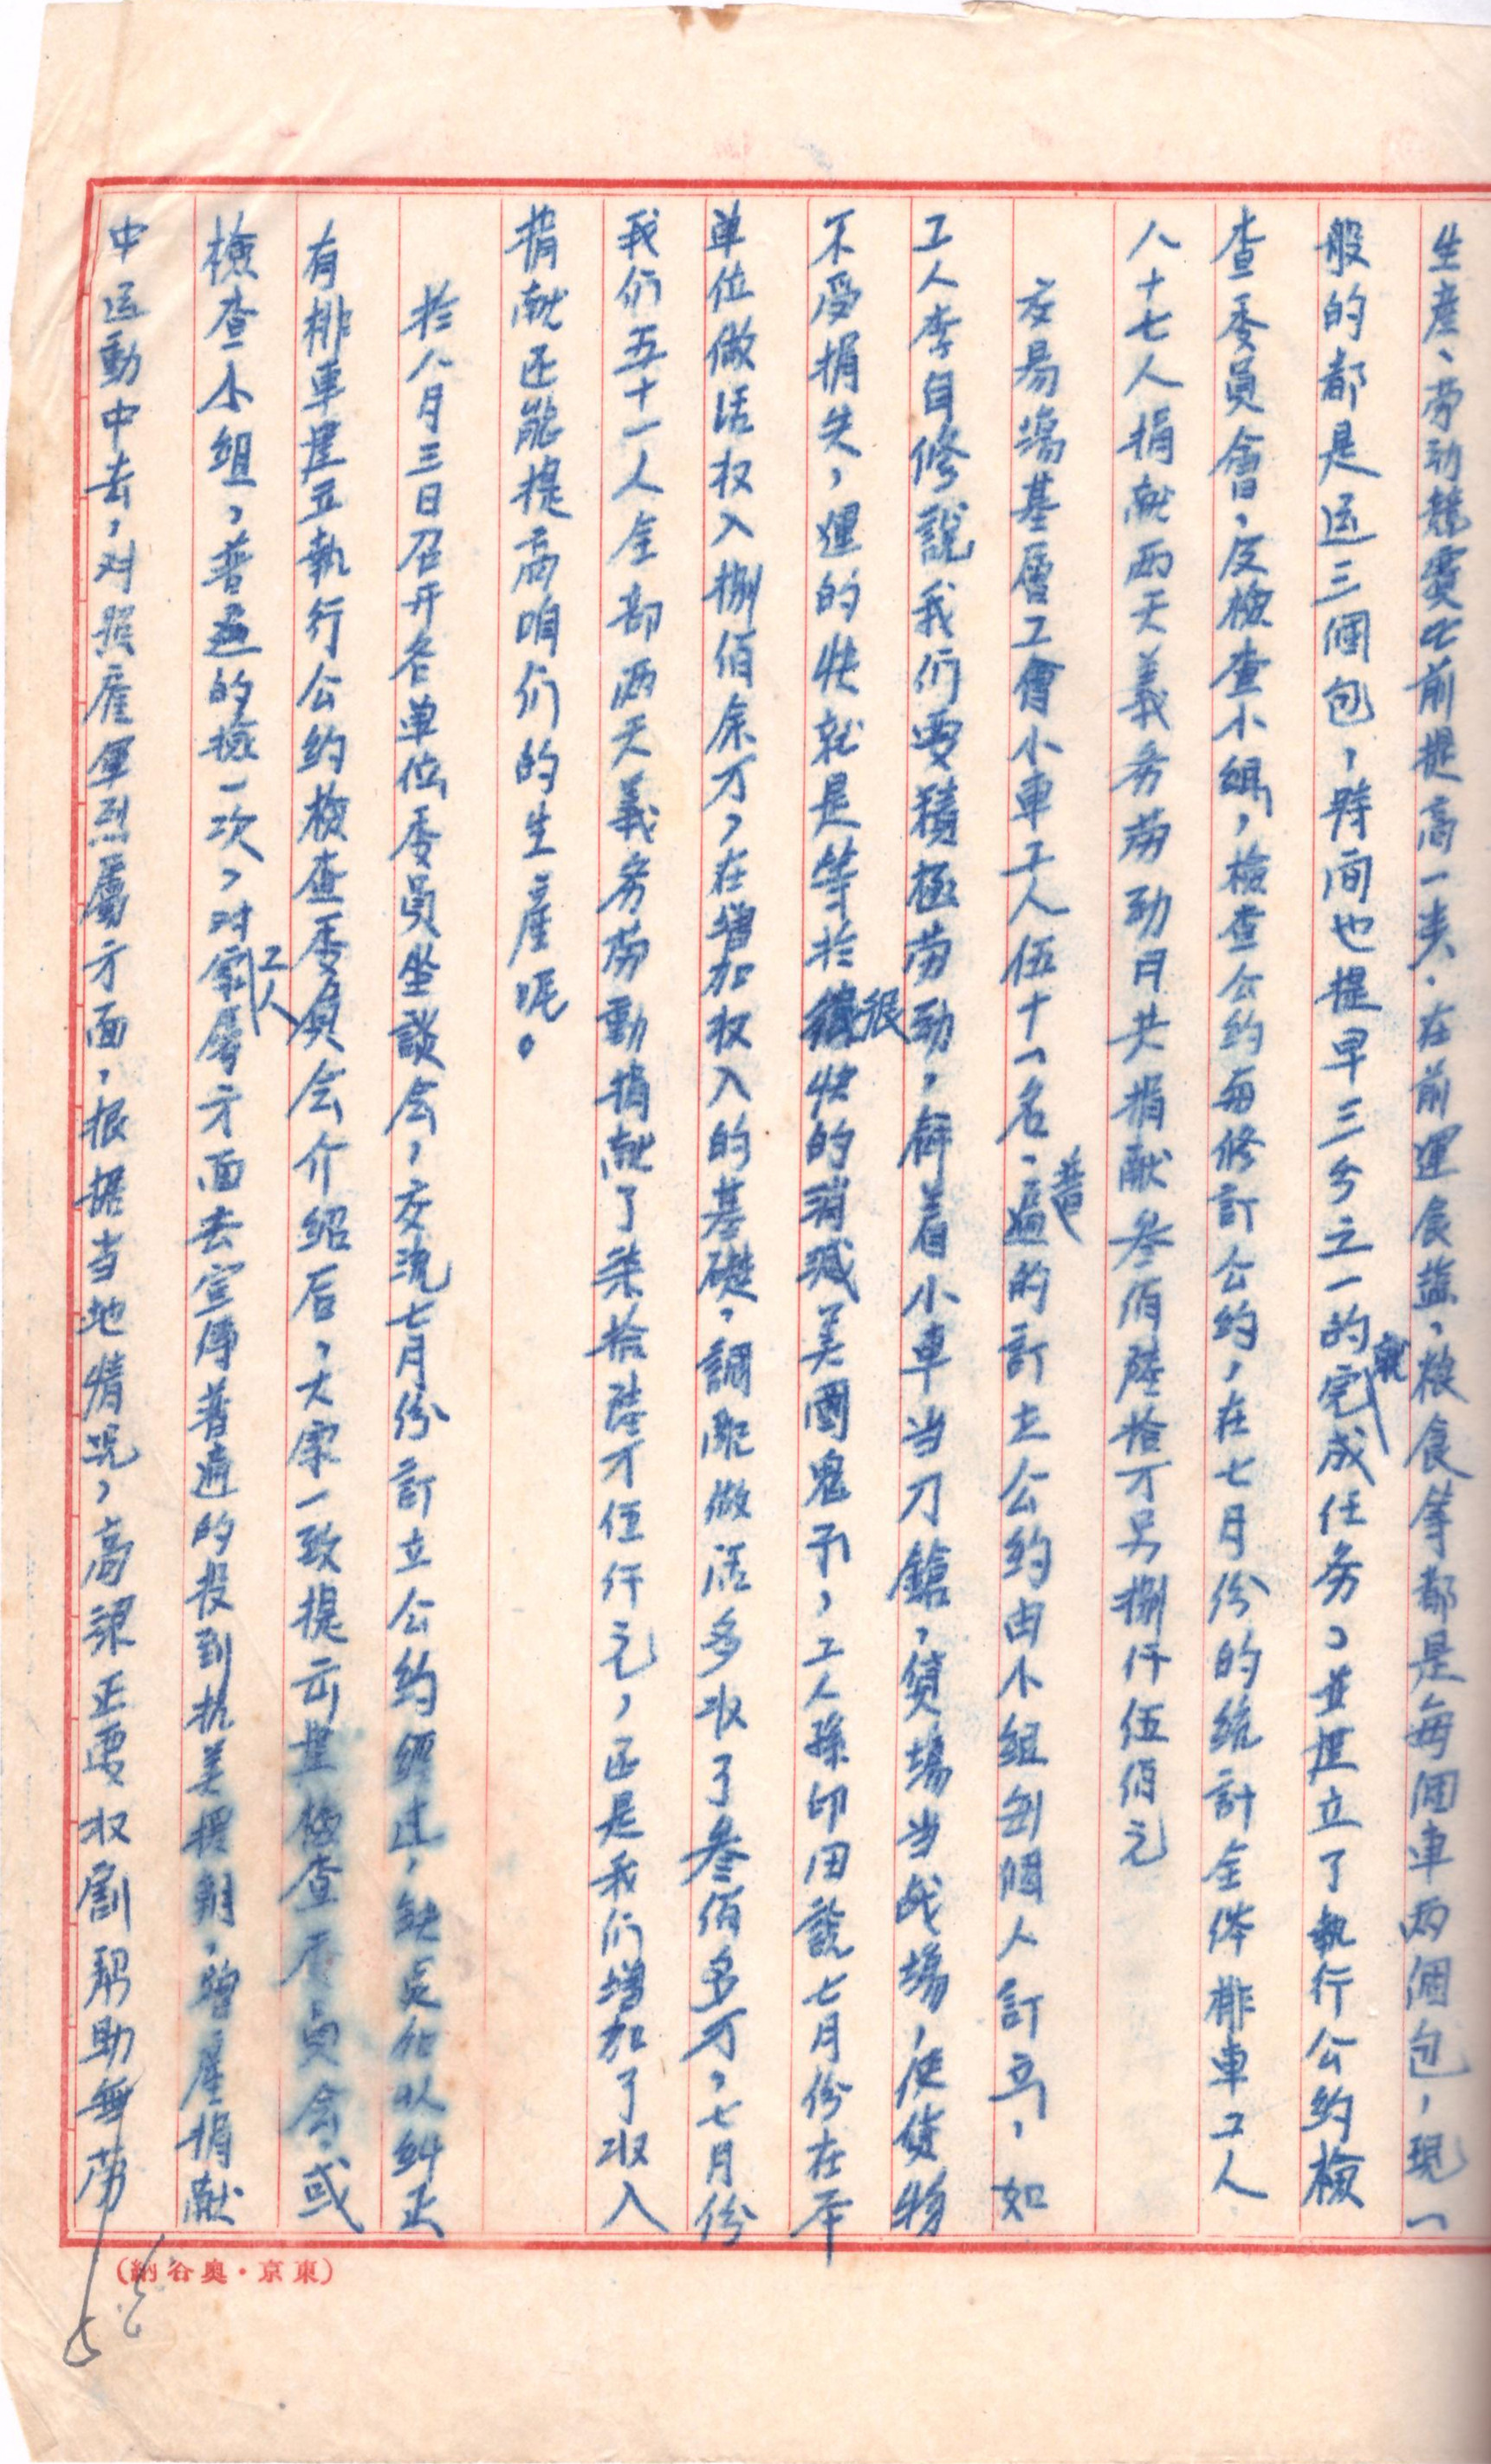 生産、劳动競賽比前提高一步.在前運食盐，粮食等都是每個車两個包，現一
般的都是运三個包，時间也提早三分之一的就完成任务，並建立了執行公約檢
查委員會，反檢查小組，檢查公约每修訂公约，在七月份的统計全体排車工人
八十七人捐献两天義务劳动月共捐献叁佰陸拾万另捌仟伍佰元
交易塲基層工會小車工人伍十一名、普遍的訂立公约由小组到個人訂立，如
工人李自修說我们要積極劳动，辭着小車当刀鎗，貨場当战場，使貨物
不受捐失，運的快就是等於很快的消滅美國鬼子，工人孫印田說七月份在本
单位做活収入捌佰余万，在增加収入的基礎，調配做活多収了叁佰多万，七月份
我们五十一人全部两天義务劳動捐献了柒拾陸万伍仟元，还是我们增加了収入
捐献还能提高咱们的生産呢。
於八月三日召开各单位委員坐談会，交流七月份訂立公约經过，缺点加以纠正
有排車建立執行公约檢查委員会介绍后，大家一致提示建檢查委員会或
檢查小组，普遍的檢一次，对工人家屬方面去宣傳普遍的投到抗美援朝，增産捐献
中运動中去，对照産軍烈屬方面，根据当地情况，高粱正要収割帮助無劳
(東京・奥谷納)